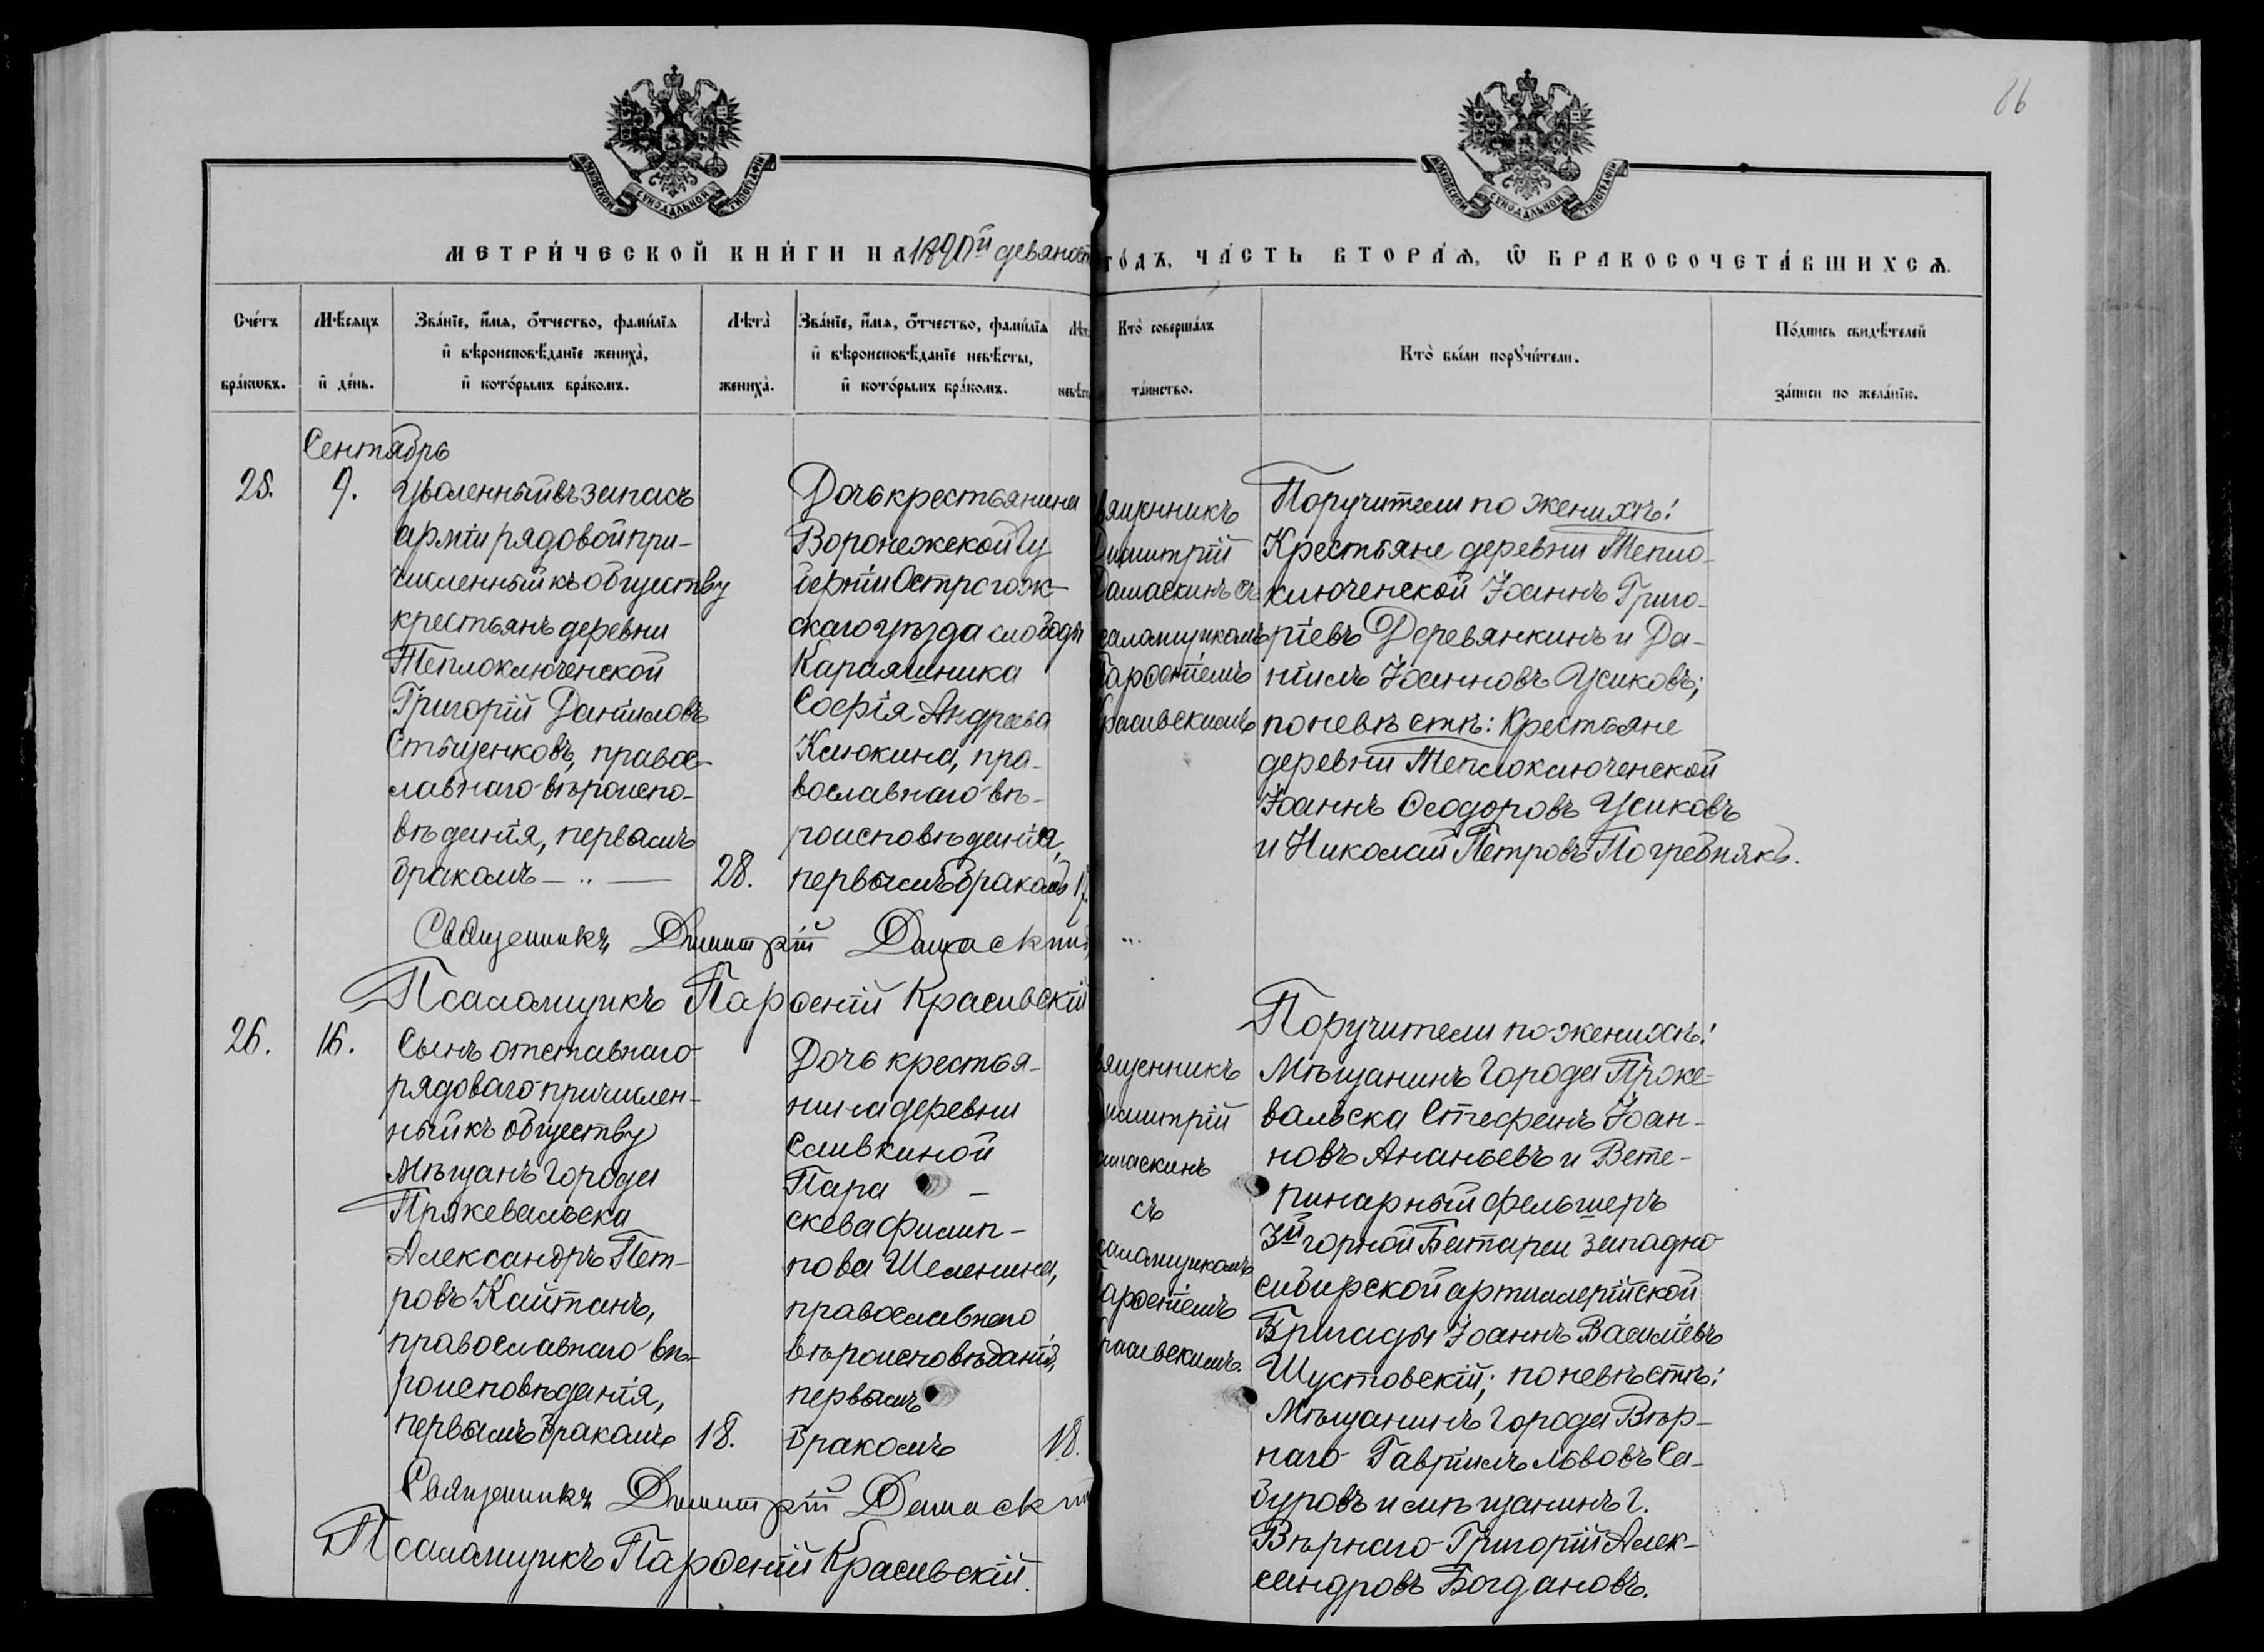 86
МОСКОВСКОЙ СУНОДАЛЬНОЙ ТИПОГРАФІИ
МОСКОВСКОЙ СУНОДАЛЬНОЙ ТИПОГРАФІИ
МЕТРИ́ЧЕСКОЙ КНИ́ГИ НА 1890й девяност
ГО́ДЪ, ЧА́СТЬ ВТОРА́Ѧ, Ѿ БРАКОСОЧЕТА́ВШИХСѦ.
Сче́тъ
бра́кѡвъ.
Мѣ́сяцъ
и҆ де́нь.
Зва́нїе, и҆́мѧ, ѻ҆́тчество, фами́лїѧ
и҆ вѣроисповѣ́данїе жениха̀,
и҆ кото́рымъ бра́комъ.
Лѣта̀
жениха̀.
Зва́нїе, и҆́мѧ, ѻ҆́тчество, фами́лїѧ
и҆ вѣроисповѣ́данїе невѣ́сты,
и҆ кото́рымъ бра́комъ.
Лѣт
невѣст
Кто̀ соверша́лъ
та́инство.
Кто̀ бы́ли порꙋчи́тели.
По́дпись свидѣ́телей
за́писи по жела́нїю.
Сентябрь
25.
9.
Уволенный въ запасъ
арміи рядовой при-
численный къ обществу
крестьянъ деревни
Теплоключенской
Григорій Даниловъ
Стыценковъ, правос-
лавнаго вѣроиспо-
вѣданія, первымъ
бракомъ — „ —
28.
Дочь крестьянина
Воронежской Гу
берніи Острогож-
скаго уѣзда слободы
Караяшника
Софія Андреева
Клюкина, пра-
вославнаго вѣ-
роисповѣданія,
первымъ бракомъ
17.
вященникъ
Димитрій
Дамаскинъ съ
саломщикомъ
Парѳеніемъ
Красивскимъ
Поручители по женихѣ:
Крестьяне деревни Тепло-
ключенской Іоаннъ Григо-
ріевъ Деревянкинъ и Да-
ніилъ Іоанновъ Усиковъ;
по невѣстѣ: Крестьяне
деревни Теплоключенской
Іоаннъ Ѳеодоровъ Усиковъ
и Николай Петровъ Погребнякъ.
Священникъ Димитрій Дамаскинъ
Псаломщикъ Парѳеній Красивскій
26.
16.
Сынъ отставнаго
рядоваго причислен-
ный къ обществу
Мѣщанъ города
Пржевальска
Александръ Пет-
ровъ Кайтанъ,
православнаго вѣ-
роисповѣданія,
первымъ бракомъ
18.
Дочь крестья-
нина деревни
Сливкиной
Пара -
скева Филип-
пова Шеленина,
православнаго
вѣроисповѣданія,
первымъ
бракомъ
18.
вященникъ
имитрій
амаскинъ
съ
саломщикомъ
арѳеніемъ
расивскимъ.
Поручители по женихѣ:
Мѣщанинъ города Прже-
вальска Стефанъ Іоан-
новъ Ананьевъ и Вете-
ринарный фельшеръ
3й горной Батареи западно
сибирской артиллерійской
Бригады Іоаннъ Василіевъ
Шустовскій; по невѣстѣ:
Мѣщанинъ города Вѣр-
наго Гавріилъ Львовъ Са-
буровъ и мѣщанинъ г.
Вѣрнаго Григорій Алек-
сандровъ Богдановъ.
Священникъ Димитрій Дамаскин
Псаломщикъ Парѳеній Красивскій.